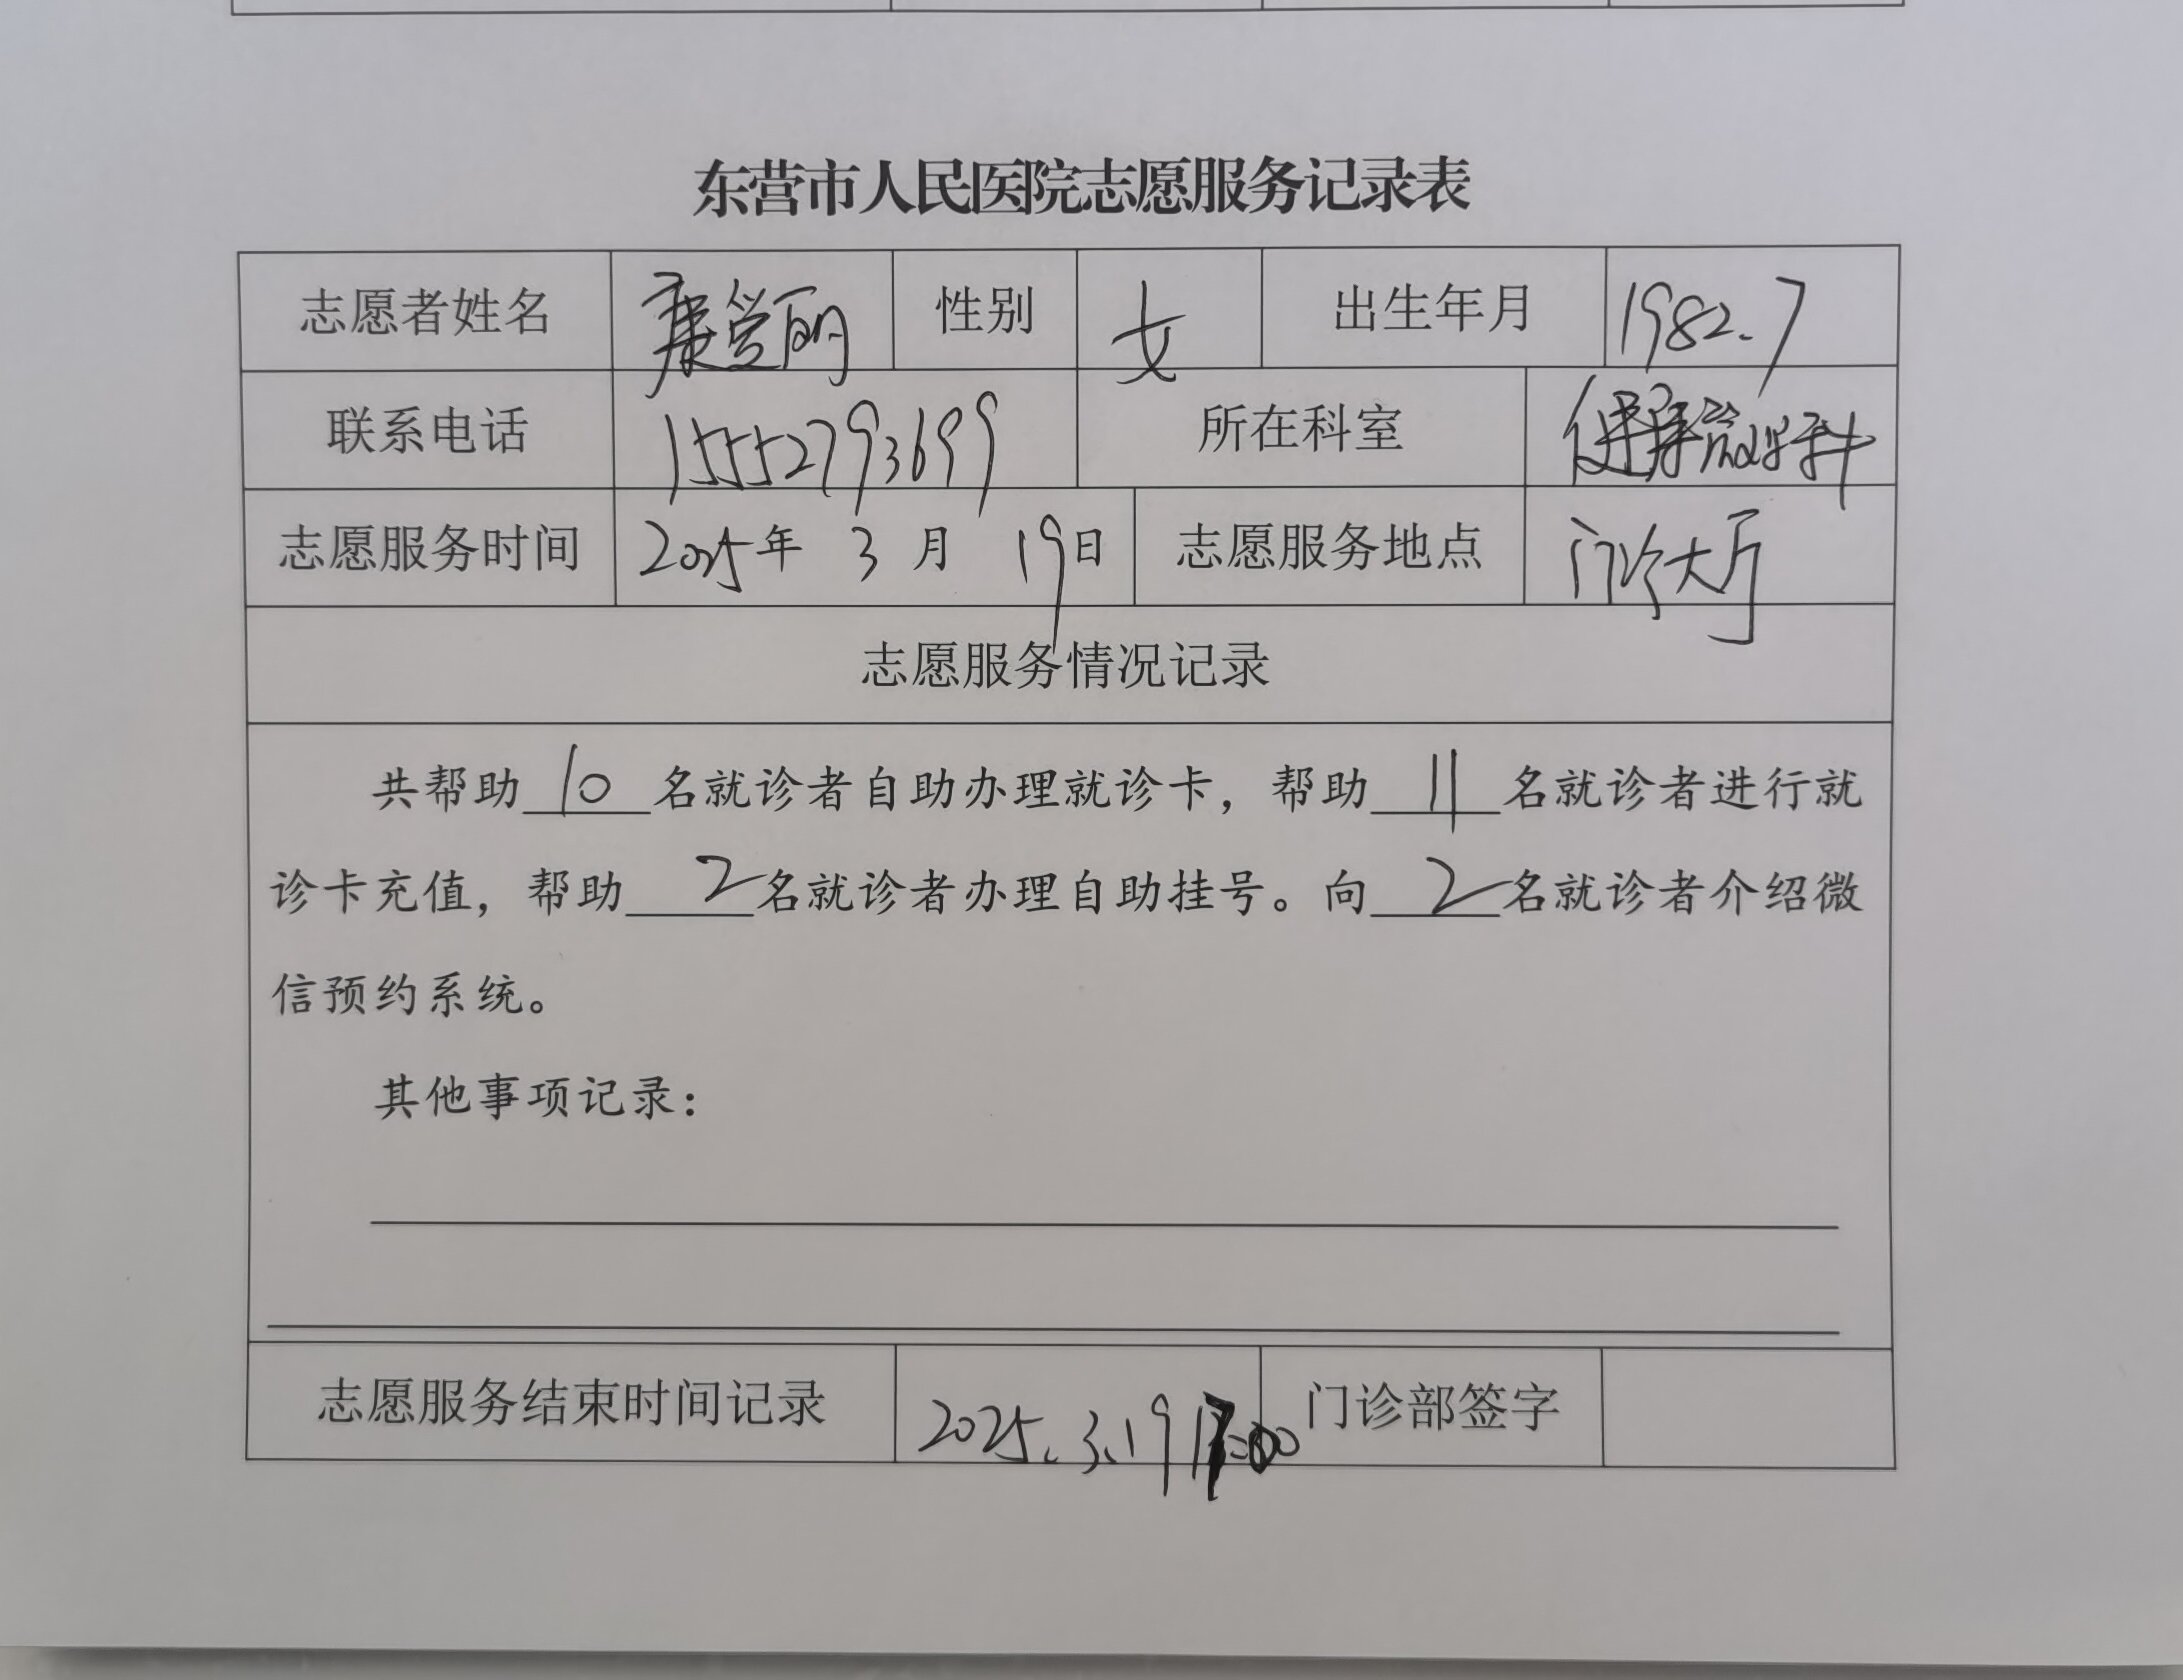 东营市人民医院志愿服务记录表
志愿者姓名 康爱丽 性别 女 出生年月 1982.7
联系电话 15552793699 所在科室 健康管理科
志愿服务时间 2025年 3 月 19日 志愿服务地点 门诊大厅
志愿服务情况记录
共帮助 10 名就诊者自助办理就诊卡，帮助 11 名就诊者进行就
诊卡充值，帮助 2 名就诊者办理自助挂号。向 2 名就诊者介绍微
信预约系统。
其他事项记录：
志愿服务结束时间记录 2025.3.19 17:00 门诊部签字